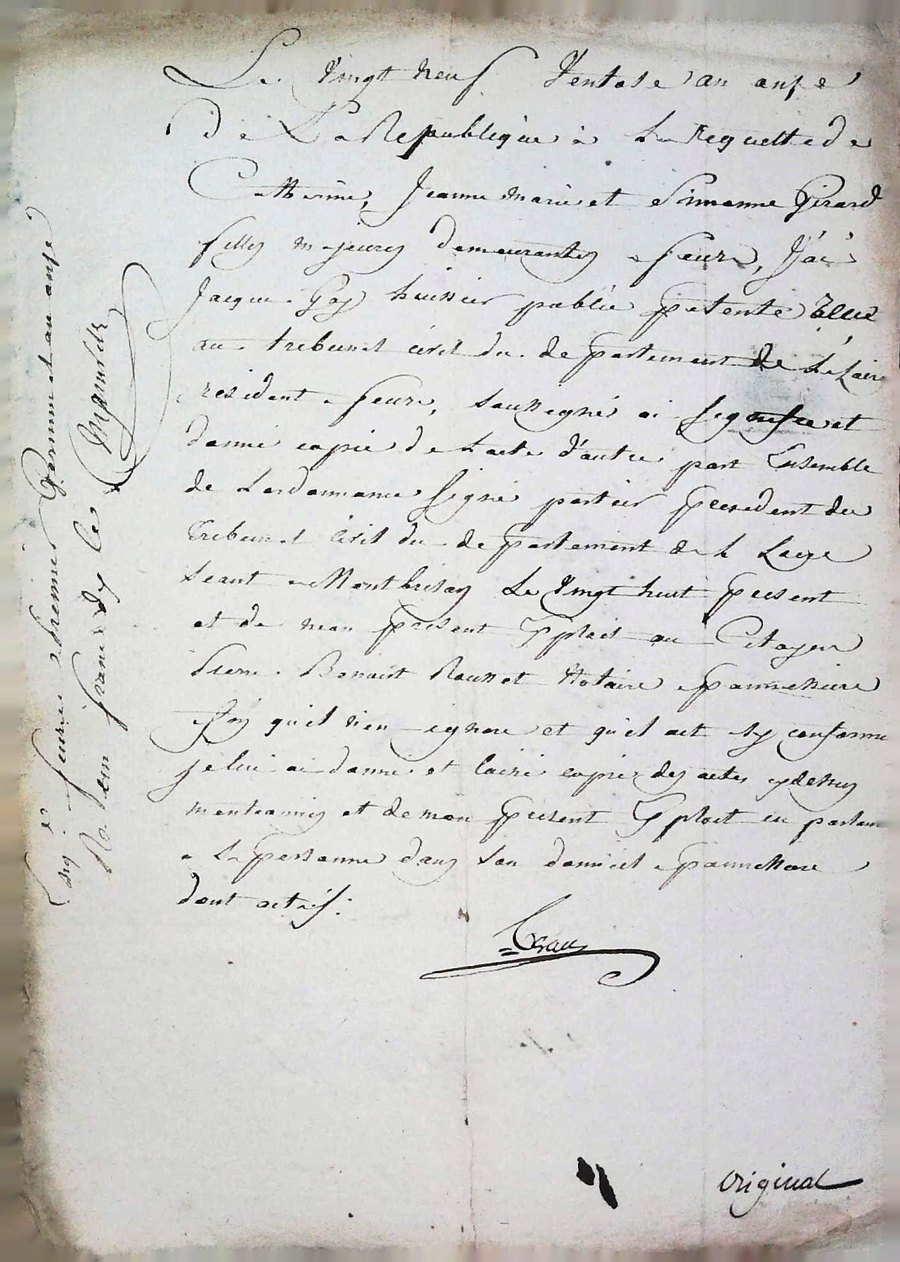 Le vingt neuf Ventose an onze
de La Republique a La Requette de
Catherine, Jeanne Marie et Simonne Girard
filles majeures demeurantes a feurs, J'ai
Jacque Gay huissier publie patenté
au tribunal civil du departement de La Loire
résident a feurs, soussigné ai signifié et
donné copie de Lacte d'autre part Ensemble
de Lordonnance signé portier president du
tribunal Civil du departement de la Loire
seant a Montbrison Le Vingt huit present
et de mon present Exploit au Citoyen
pierre Benoist Rousset Notaire a pannissiere
afin qu'il n'en ignore et qu'il ait sy conformer
je lui ai donné et laisé copies des actes cydessus
mentionnés et de mon present Exploit en parlant
a Sa personne dans son domicile a pannissiere
dont acte
Gay
original
a feurs le premier Germinal an onze